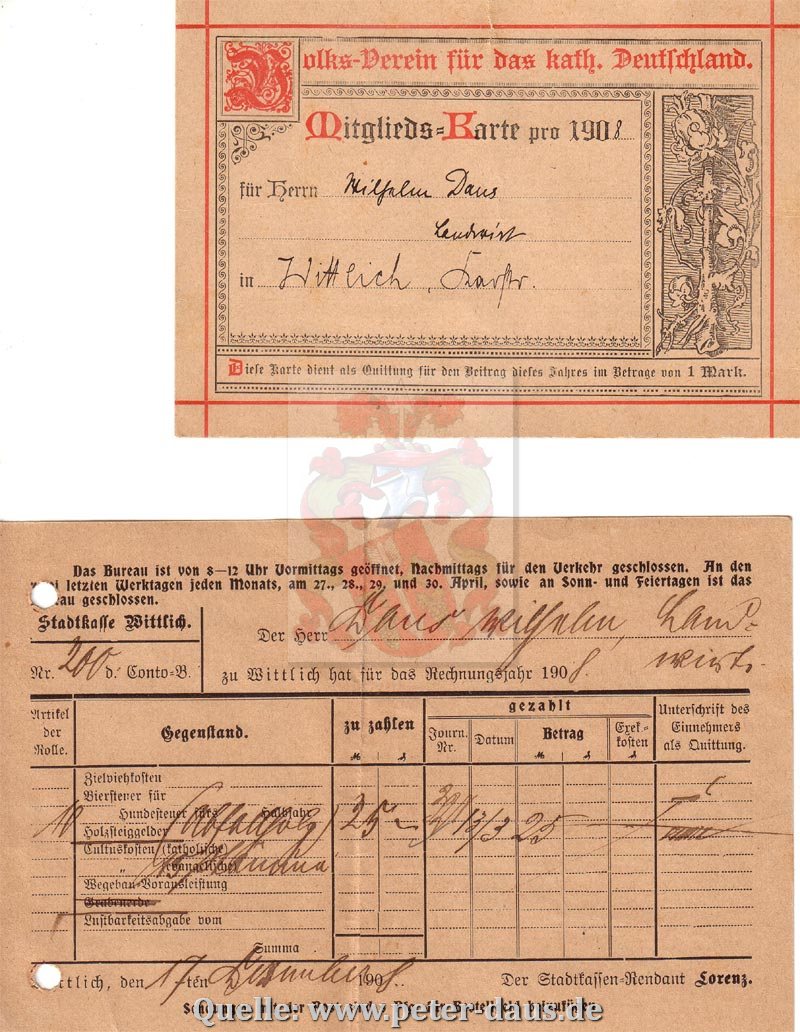 Volks-Verein für das kath. Deutschland.
Mitglieds-Karte pro 1908
für Herrn Wilhelm Daus
Landwirt
in Wittlich, Karrstr.
Diese Karte dient als Quittung für den Beitrag dieses Jahres im Betrage von 1 Mark.
Das Bureau ist von 8—12 Uhr Vormittags geöffnet, Nachmittags für den Verkehr geschlossen. An den
letzten Werktagen jeden Monats, am 27., 28., 29. und 30. April, sowie an Sonn- und Feiertagen ist das
geschlossen.
Stadtkasse Wittlich.
Nr. 200 d. Conto-B.
Der Herr Daus Wilhelm, Land-
wirt
zu Wittlich hat für das Rechnungsjahr 1908.
Artikel der Rolle.
Gegenstand.
zu zahlen
gezahlt
Journ. Nr.
Datum
Betrag
Exek-kosten
Unterschrift des Einnehmers als Quittung.
Zielviehkosten
Biersteuer für
Hundesteuer fürs Halbjahr
10 Holzsteiggelder (Abfallholz) 25 - 13/3 25 -
Cultuskosten (katholische)
" (evangelische)
Wegebau-Vorausleistung
Grabenerde
Lustbarkeitsabgabe vom
Summa
Wittlich, den 17ten Dezember 1908.
Der Stadtkassen-Rendant Lorenz.
Quelle: www.peter-daus.de